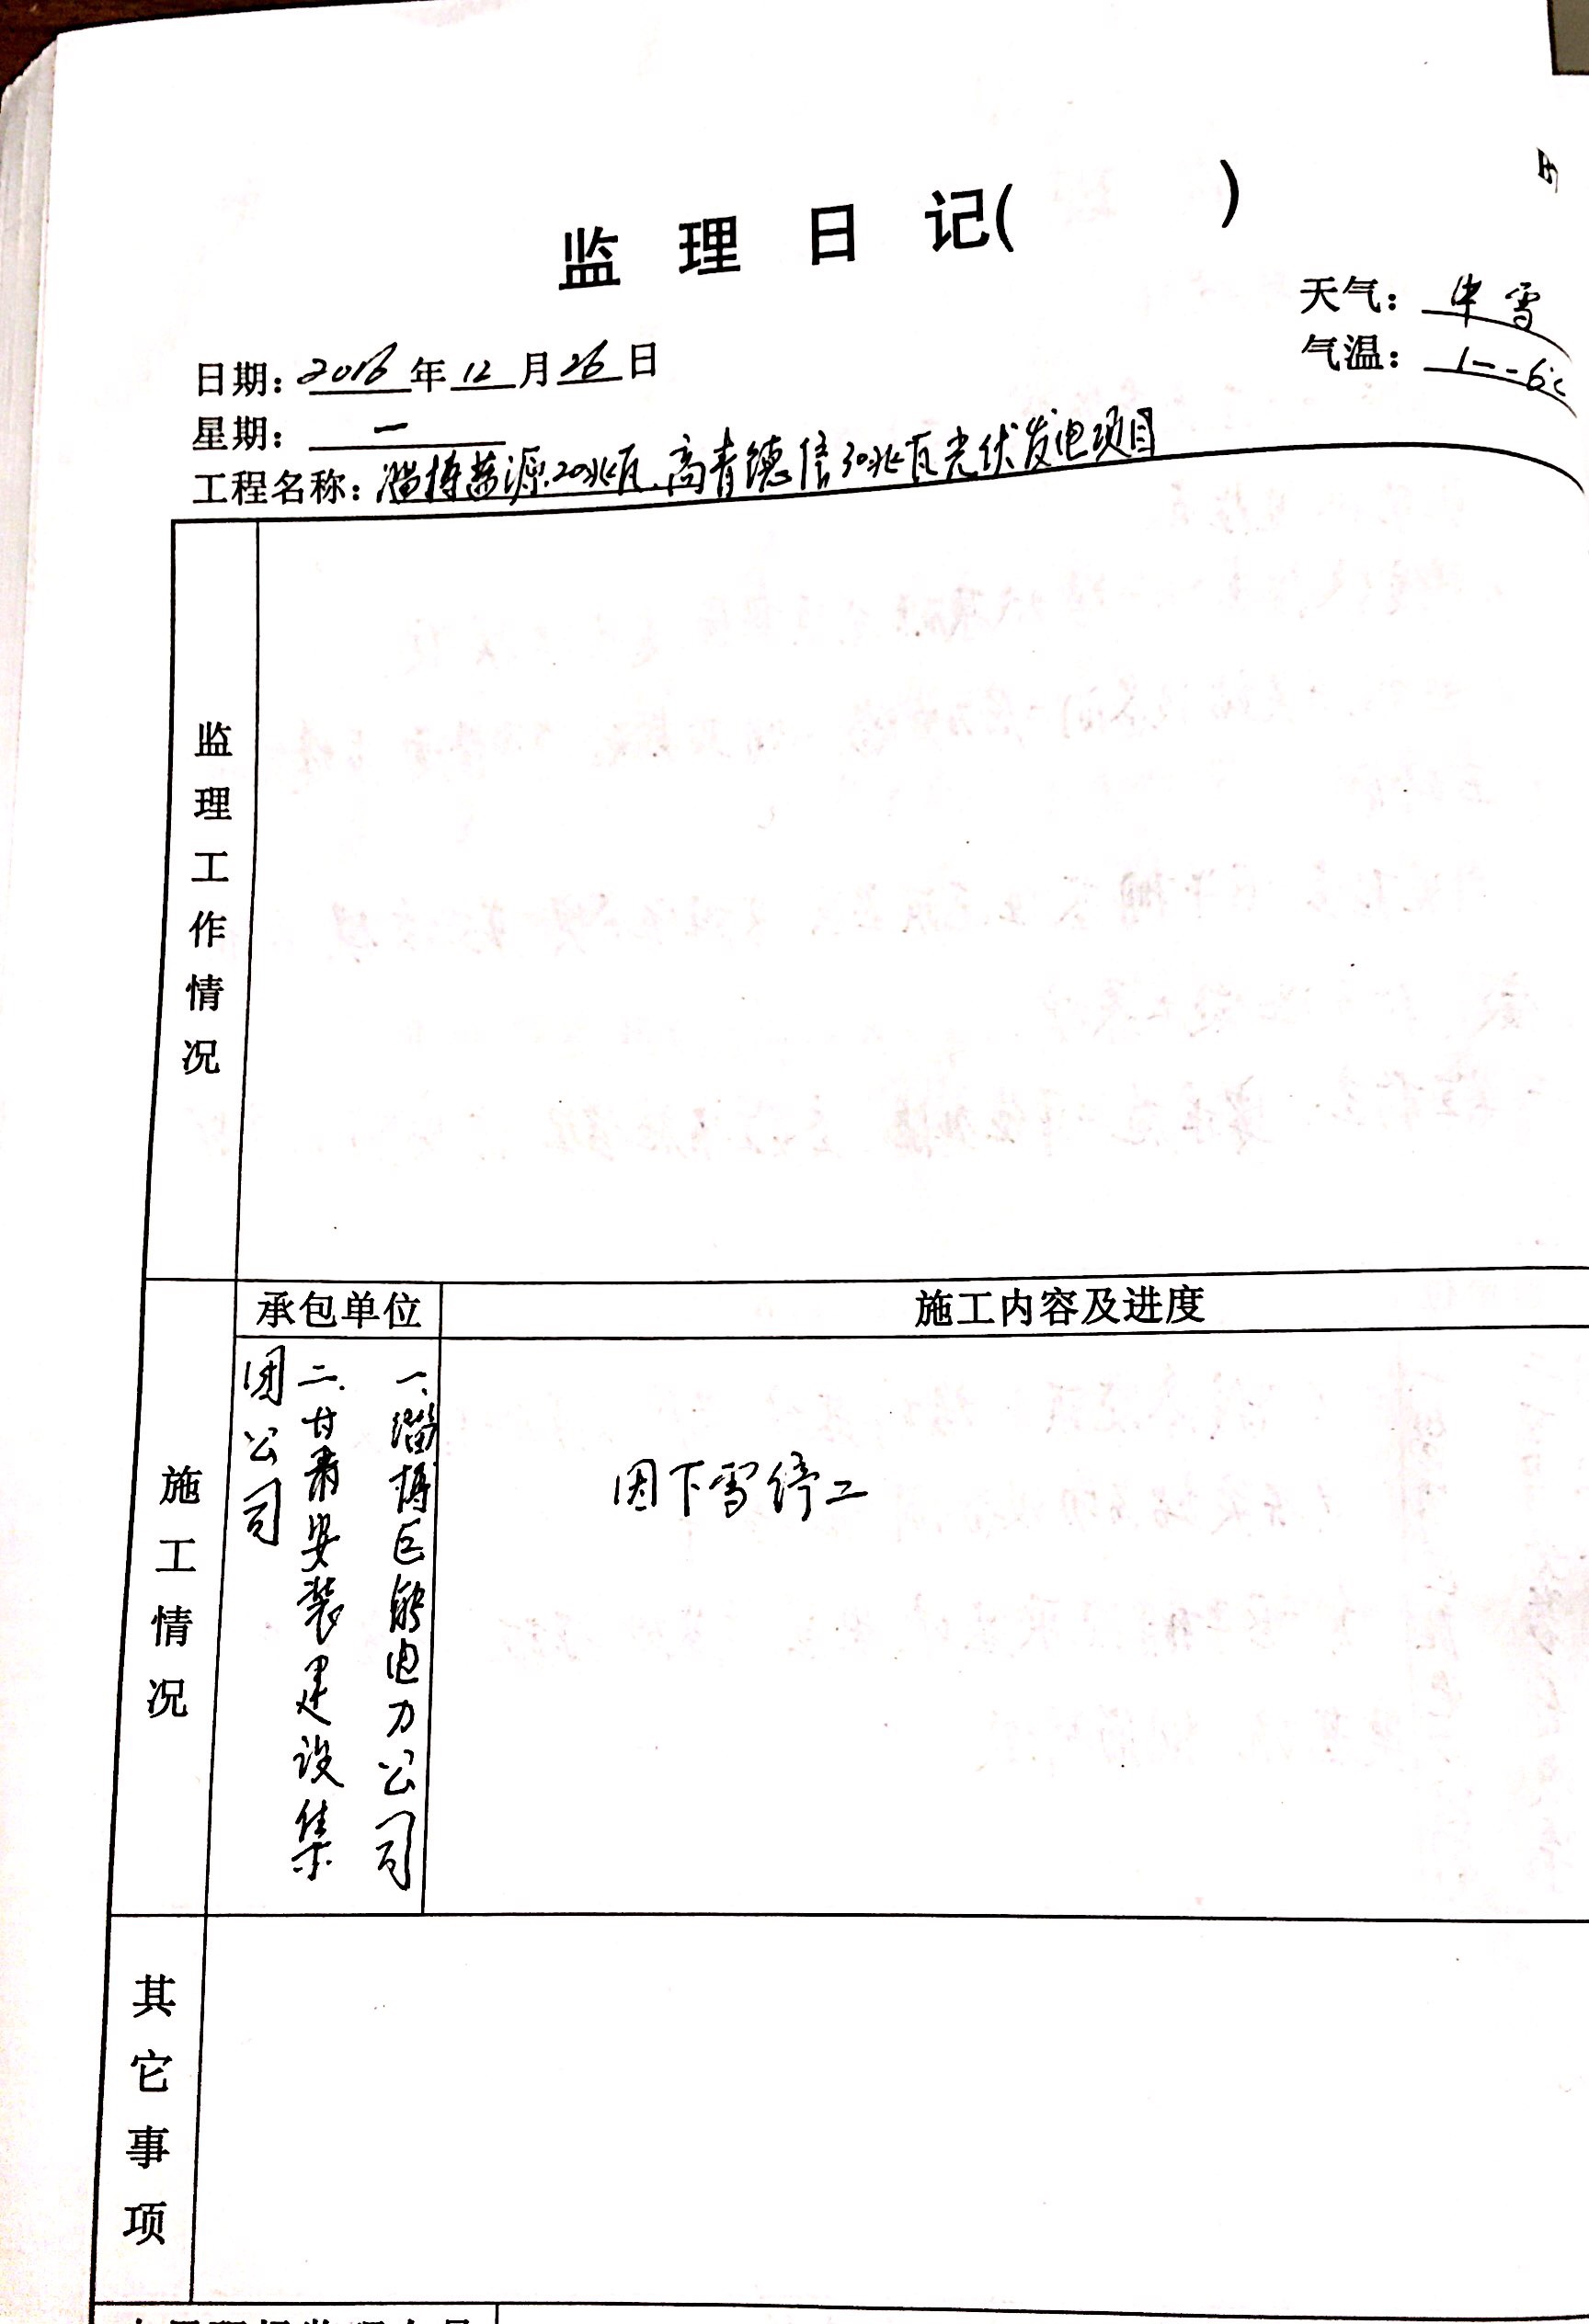 监理日记(        )
天气：中雪
气温：1--6℃
日期：2016年12月26日
星期：一
工程名称：淄博蓝源20兆瓦.高青德信30兆瓦光伏发电项目
监理工作情况
承包单位
施工内容及进度
施工情况
一、淄博巨能电力公司
二.甘肃安装建设集
团公司
因下雪停工
其它事项